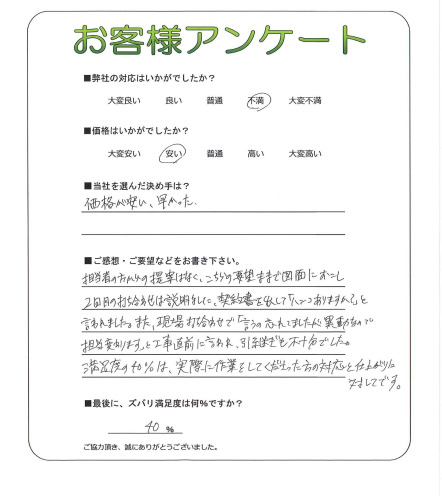 お客様アンケート
■弊社の対応はいかがでしたか？
大変良い 良い 普通 不満 大変不満
■価格はいかがでしたか？
大変安い 安い 普通 高い 大変高い
■当社を選んだ決め手は？
価格が安い、早かった。
■ご感想・ご要望などをお書き下さい。
担当者の方からの提案はなく、こちらの要望のまま図面におこし
2回目の打ち合わせは説明なしに、契約書を出して「ハンコありますか？」と
言われました。また、現場打ち合わせで「言うの忘れてましたが異動なので
担当変わります」と工事直前に言われ、引き継ぎも不十分でした。
満足度の40％は、実際に作業をしてくださった方の対応と仕上がりに
対してです。
■最後に、ズバリ満足度は何％ですか？
40 ％
ご協力頂き、誠にありがとうございました。